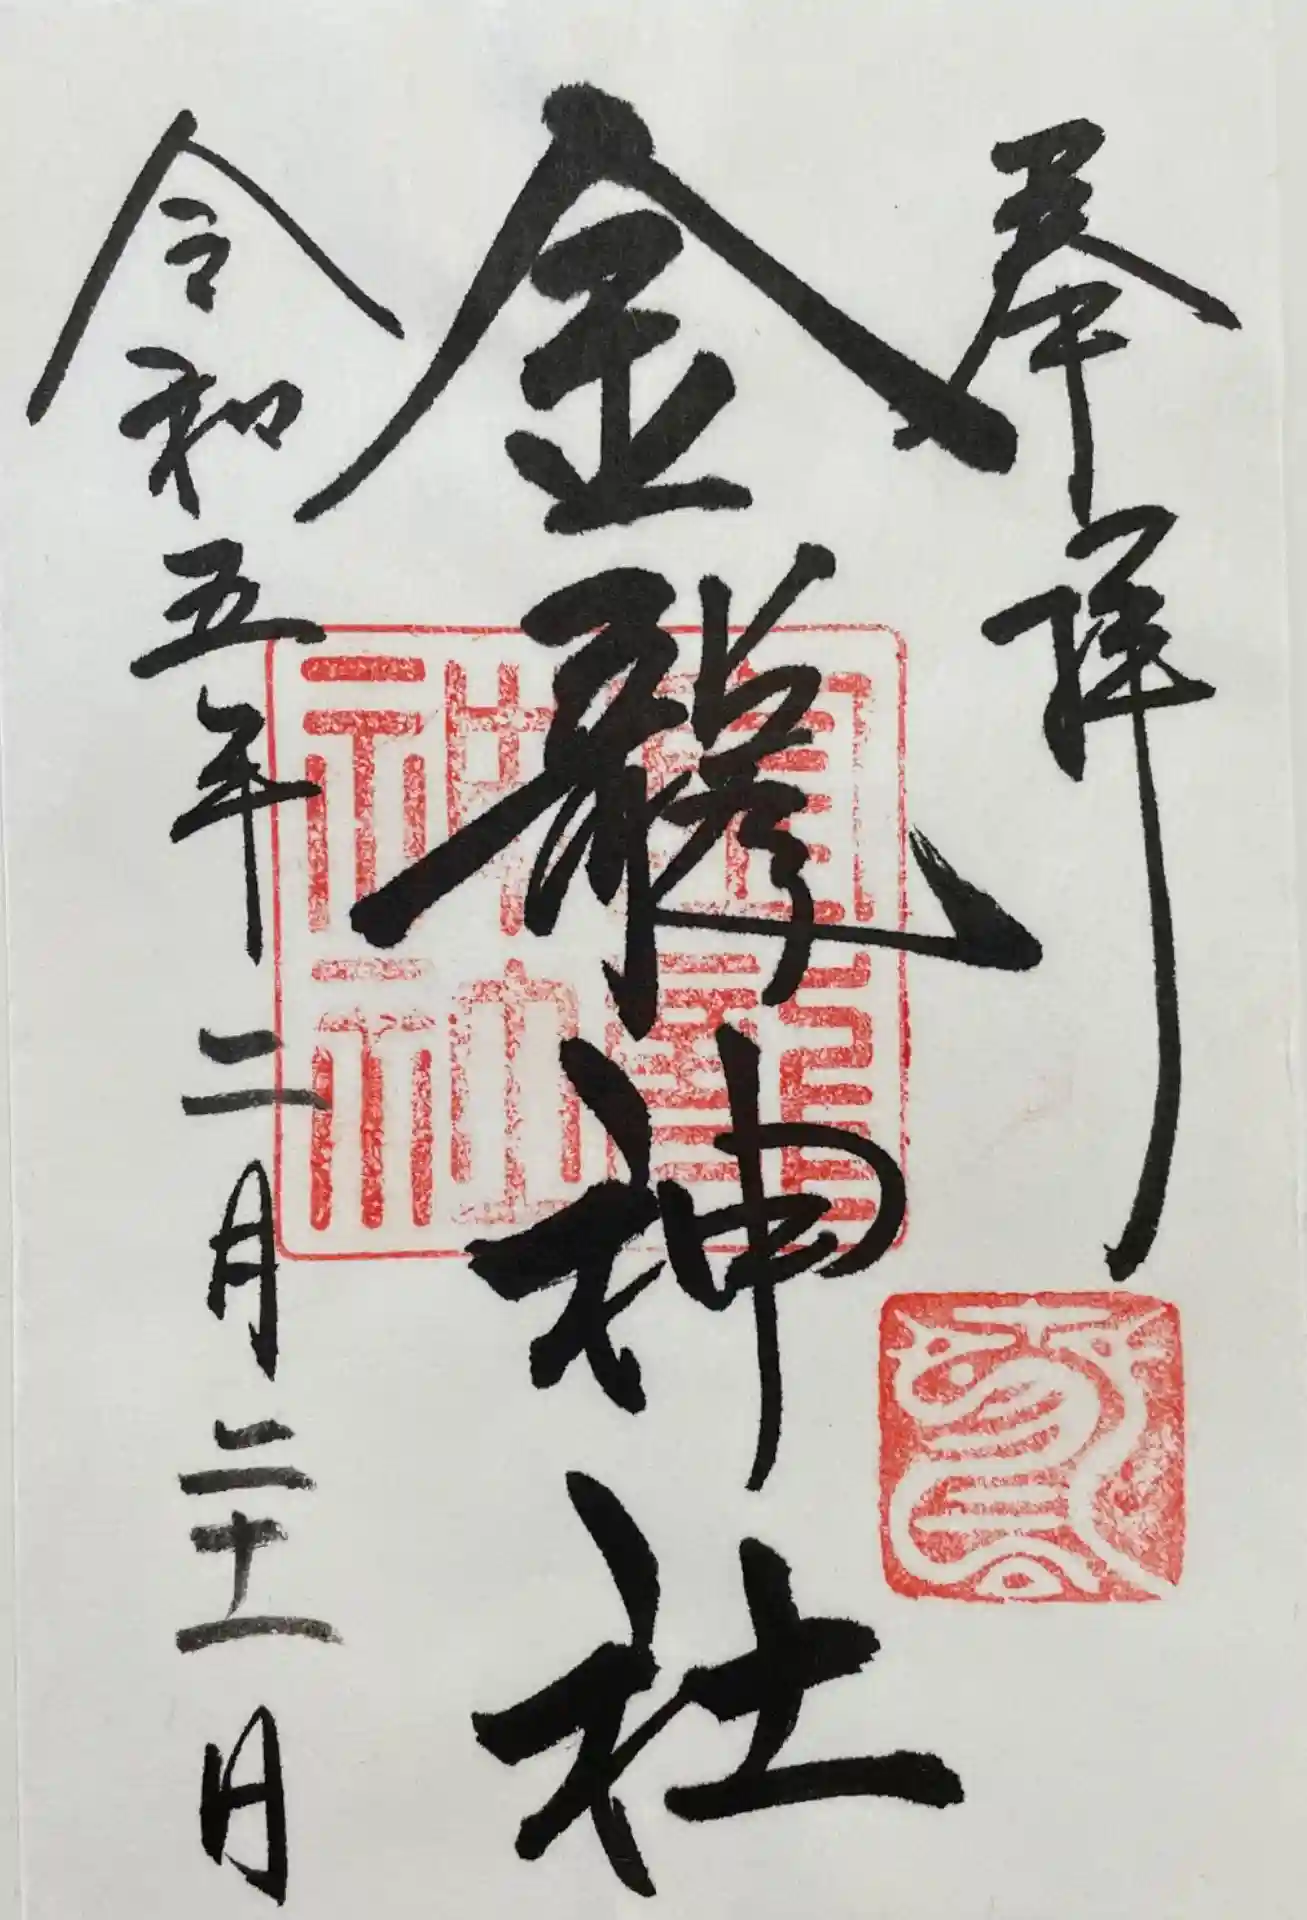 奉拝
金龍神社
令和五年二月二十一日
金龍
神社